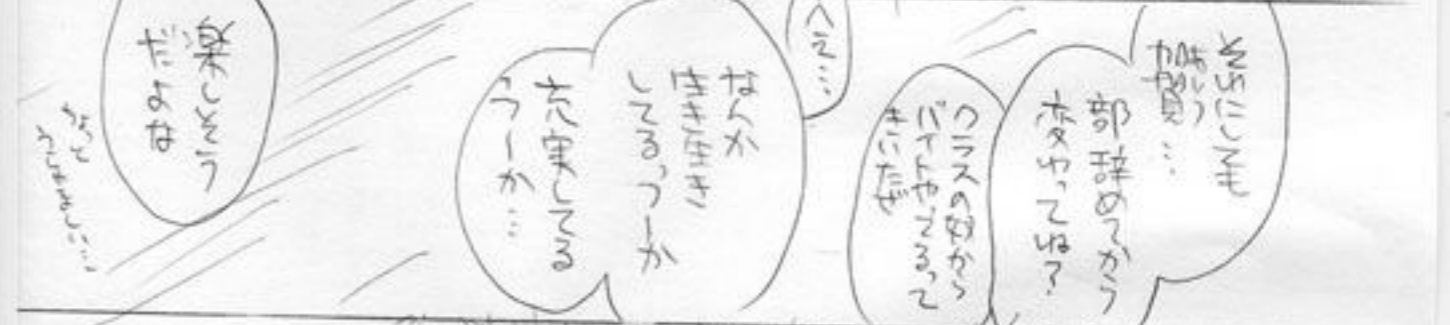 それにしても
あいつ
加賀…
部辞めてから
変わってね？
クラスの奴から
バイトやってるって
きいたぜ
へえ…
なんか
生き生き
してるっつーか
充実してる
つーか…
楽しそう
だよな
ちょっと
うらやましい…